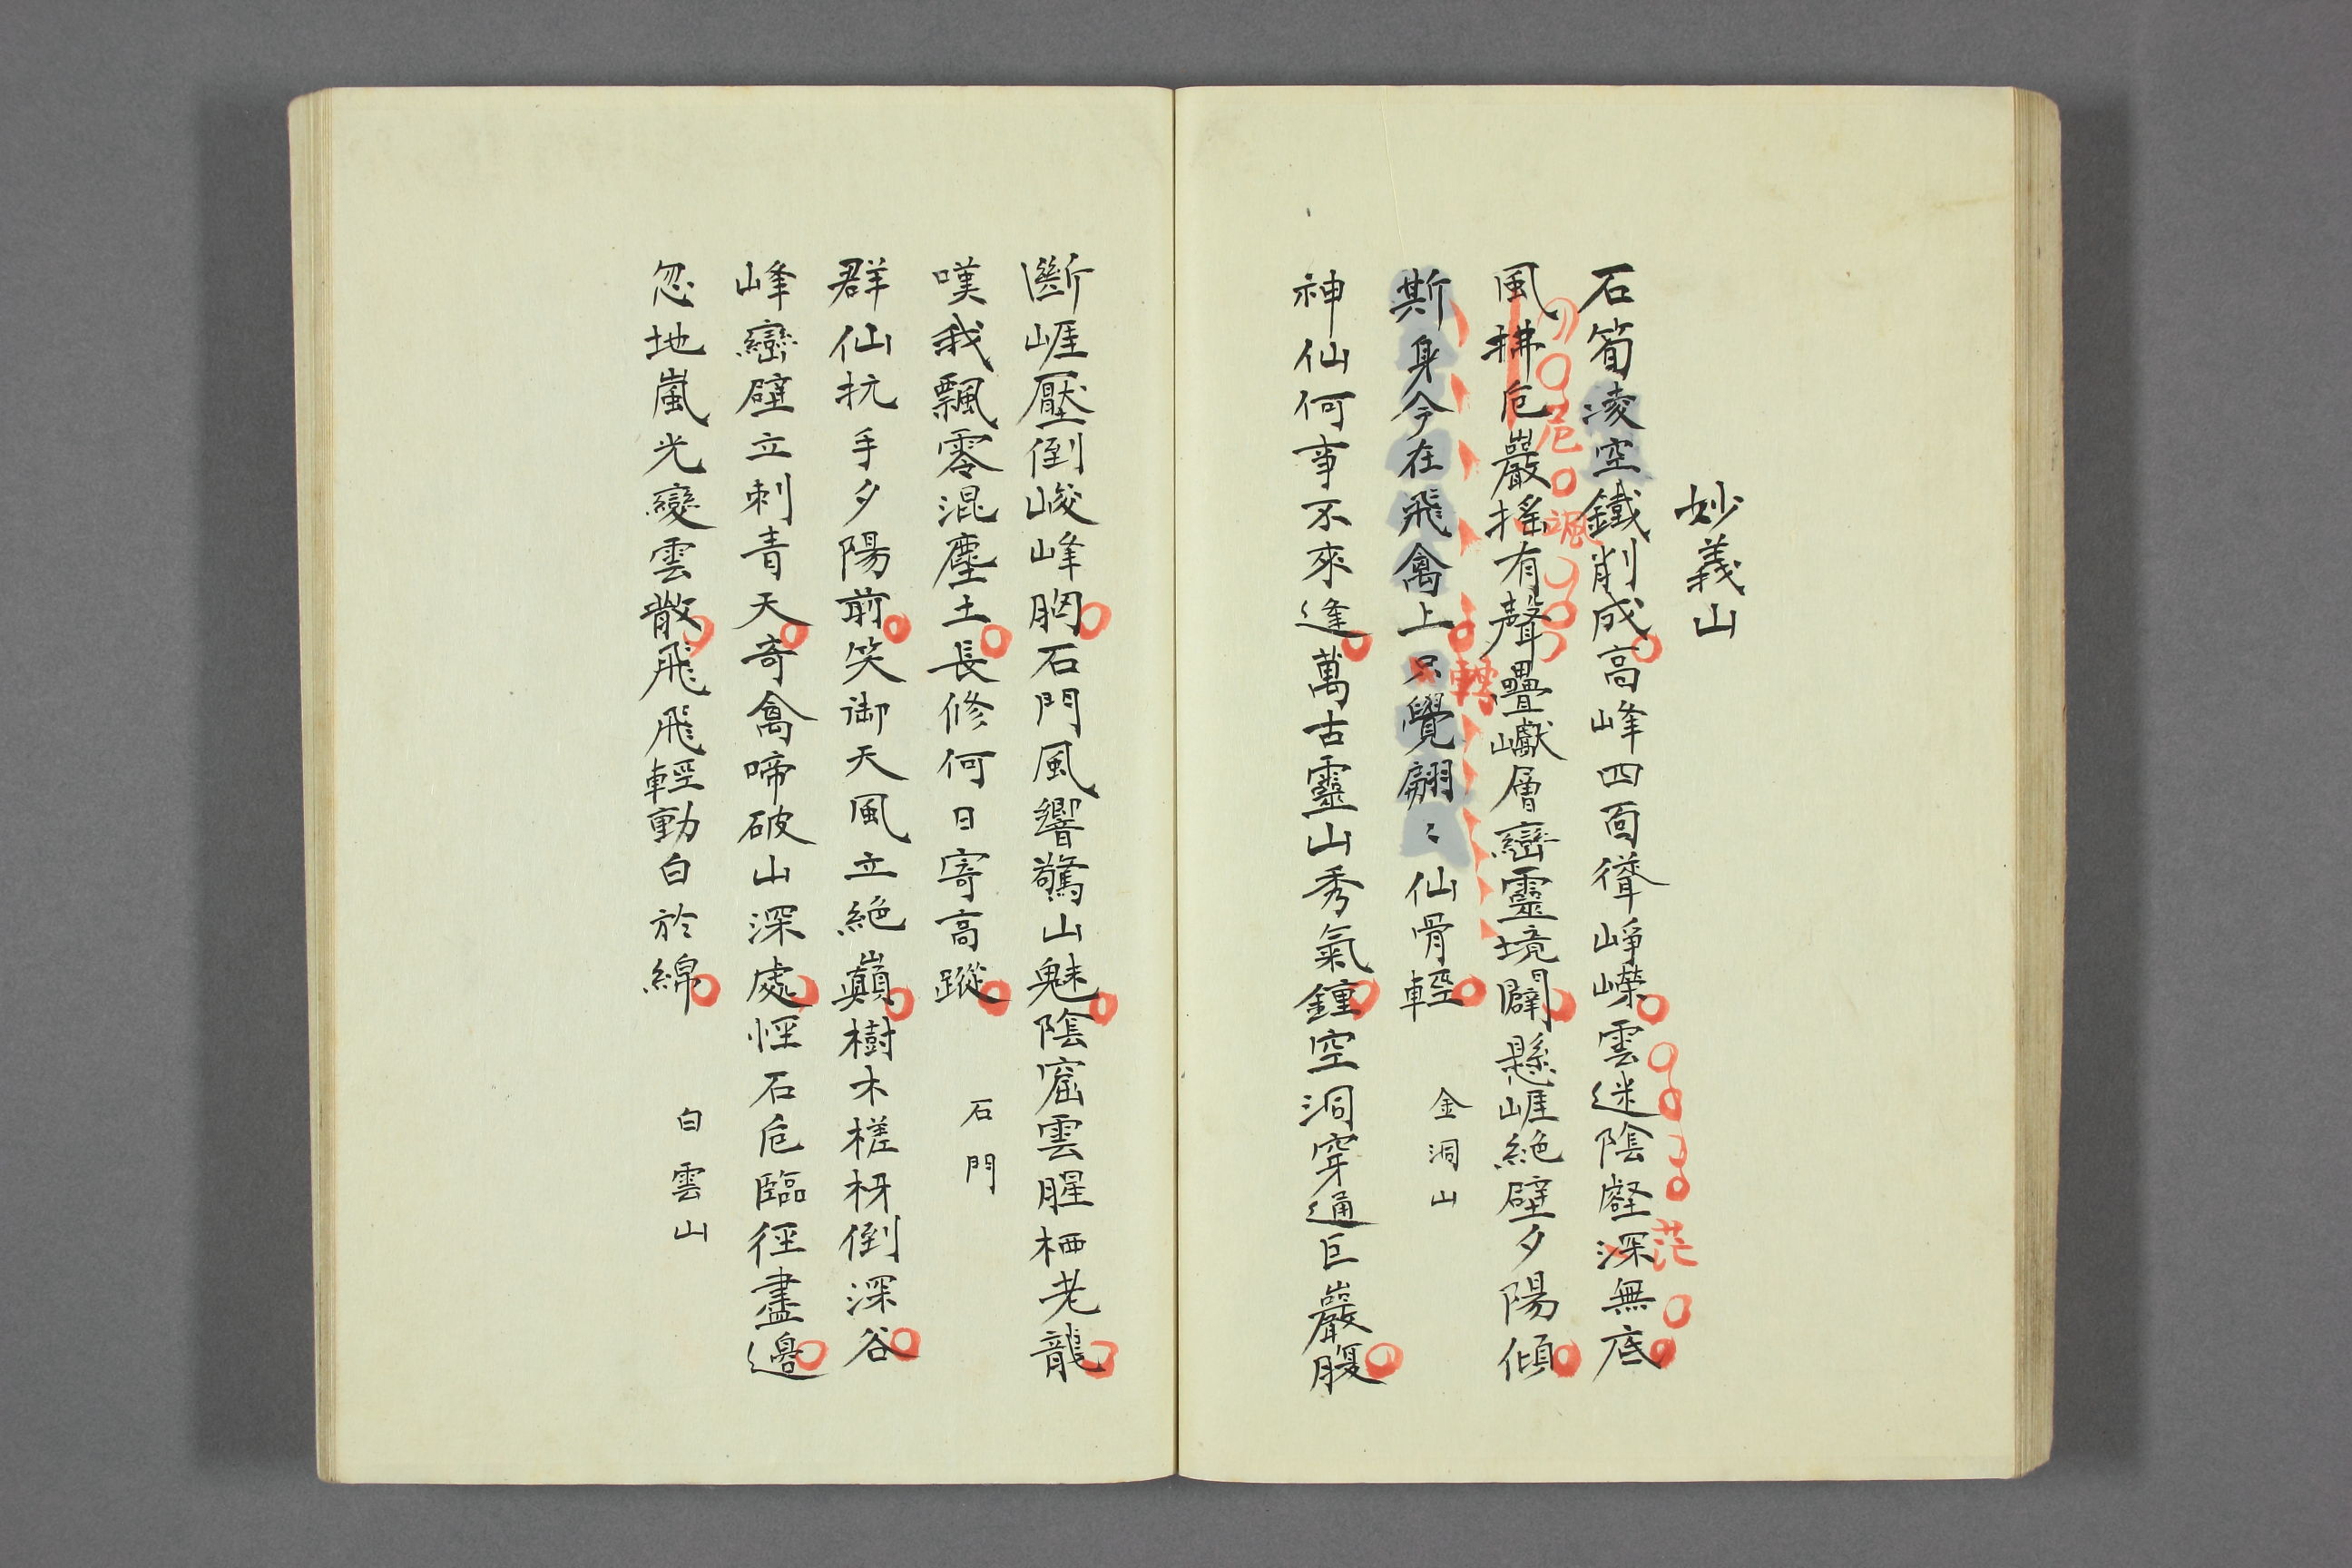 妙義山
石筍凌空鐵削成高峰四面聳崢嶸雲迷陰壑深無底
茫
風拂危巖搖有聲疊巘層巒靈境闢懸崕絶壁夕陽傾
危
颯
斯身今在飛禽上只覺翩〻仙骨輕
轉
金洞山
神仙何事不來逢萬古靈山秀氣鍾空洞穿通巨巖腹
斷崕壓倒峻峰胸石門風響驚山魅陰窟雲腥栖老龍
嘆我飄零混塵土長修何日寄高蹤
石門
群仙抗手夕陽前笑御天風立絶巓樹木槎枒倒深谷
峰巒壁立刺青天奇禽啼破山深處怪石危臨徑盡邊
忽地嵐光變雲散飛飛輕動白於綿
白雲山